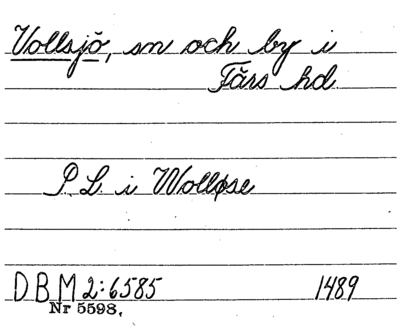 Vollsjö, sn och by i
Färs hd.
P. L. i Wolløse
DBM 2:6585 1489
Nr 5598.